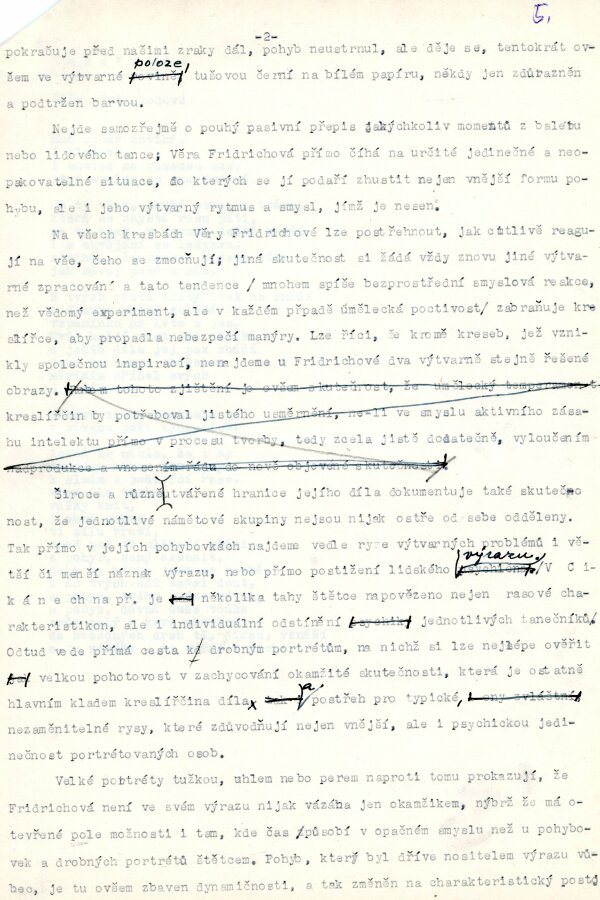 5.
-2-
pokračuje před našimi zraky dál, pohyb neustrnul, ale děje se, tentokrát ov-
poloze
šem ve výtvarné rovině, tušovou černí na bílém papíru, někdy jen zdůrazněn
a podtržen barvou.
Nejde samozřejmě o pouhý pasivní přepis jakýchkoliv momentů z baletu
nebo lidového tance; Věra Fridrichová přímo číhá na určité jedinečné a neo-
pakovatelné situace, do kterých se jí podaří zhustit nejen vnější formu po-
hybu, ale i jeho výtvarný rytmus a smysl, jímž je nesen.
Na všech kresbách Věry Fridrichové lze postřehnout, jak citlivě reagu-
jí na vše, čeho se zmocňují; jiná skutečnost si žádá vždy znovu jiné výtvar-
rné zpracování a tato tendence / mnohem spíše bezprostřední smyslová reakce,
než vědomý experiment, ale v každém případě umělecká poctivost/ zabraňuje kre
slířce, aby propadla nebezpečí manýry. Lze říci, že kromě kreseb, jež vzni-
kly společnou inspirací, nenajdeme u Fridrichové dva výtvarně stejně řešené
obrazy. Rubem tohoto zjištění je ovšem skutečnost, že umělecký temperament
kreslířčin by potřeboval jistého usměrnění, ne-li ve smyslu aktivního zása-
hu intelektu přímo v procesu tvorby, tedy zcela jistě dodatečně, vyloučením
nadprodukce a vnosením řádu do nově objevené skutečnosti.
Široce a různě utvářené hranice jejího díla dokumentuje také skutečno
nost, že jednotlivé námětové skupiny nejsou nijak ostře od sebe odděleny.
Tak přímo v jejích pohybovkách najdeme vedle ryze výtvarných problémů i vě-
výrazu.
tší či menší náznak výrazu, nebo přímo postižení lidského psychična. /V C i-
k á n e c h např. je několika tahy štětce napovězeno nejen rasové cha-
rakteristikon, ale i individuální odstínění psychik jednotlivých tanečníků/
Odtud vede přímá cesta k drobným portrétům, na nichž si lze nejlépe ověřit
velkou pohotovost v zachycování okamžité skutečnosti, která je ostatně
hlavním kladem kreslířčina díla, tak a postřeh pro typické,
nezaměnitelné rysy, které zdůvodňují nejen vnější, ale i psychickou jedi-
nečnost portrétovaných osob.
Velké portréty tužkou, uhlem nebo perem naproti tomu prokazují, že
Fridrichová není ve svém výrazu nijak vázána jen okamžikem, nýbrž že má o-
tevřené pole možnosti i tam, kde čas působí v opačném smyslu než u pohybo-
vek a drobných portrétů štětcem. Pohyb, který byl dříve nositelem výrazu vů-
bec, je tu ovšem zbaven dynamičnosti, a tak změněn na charakteristický postoj